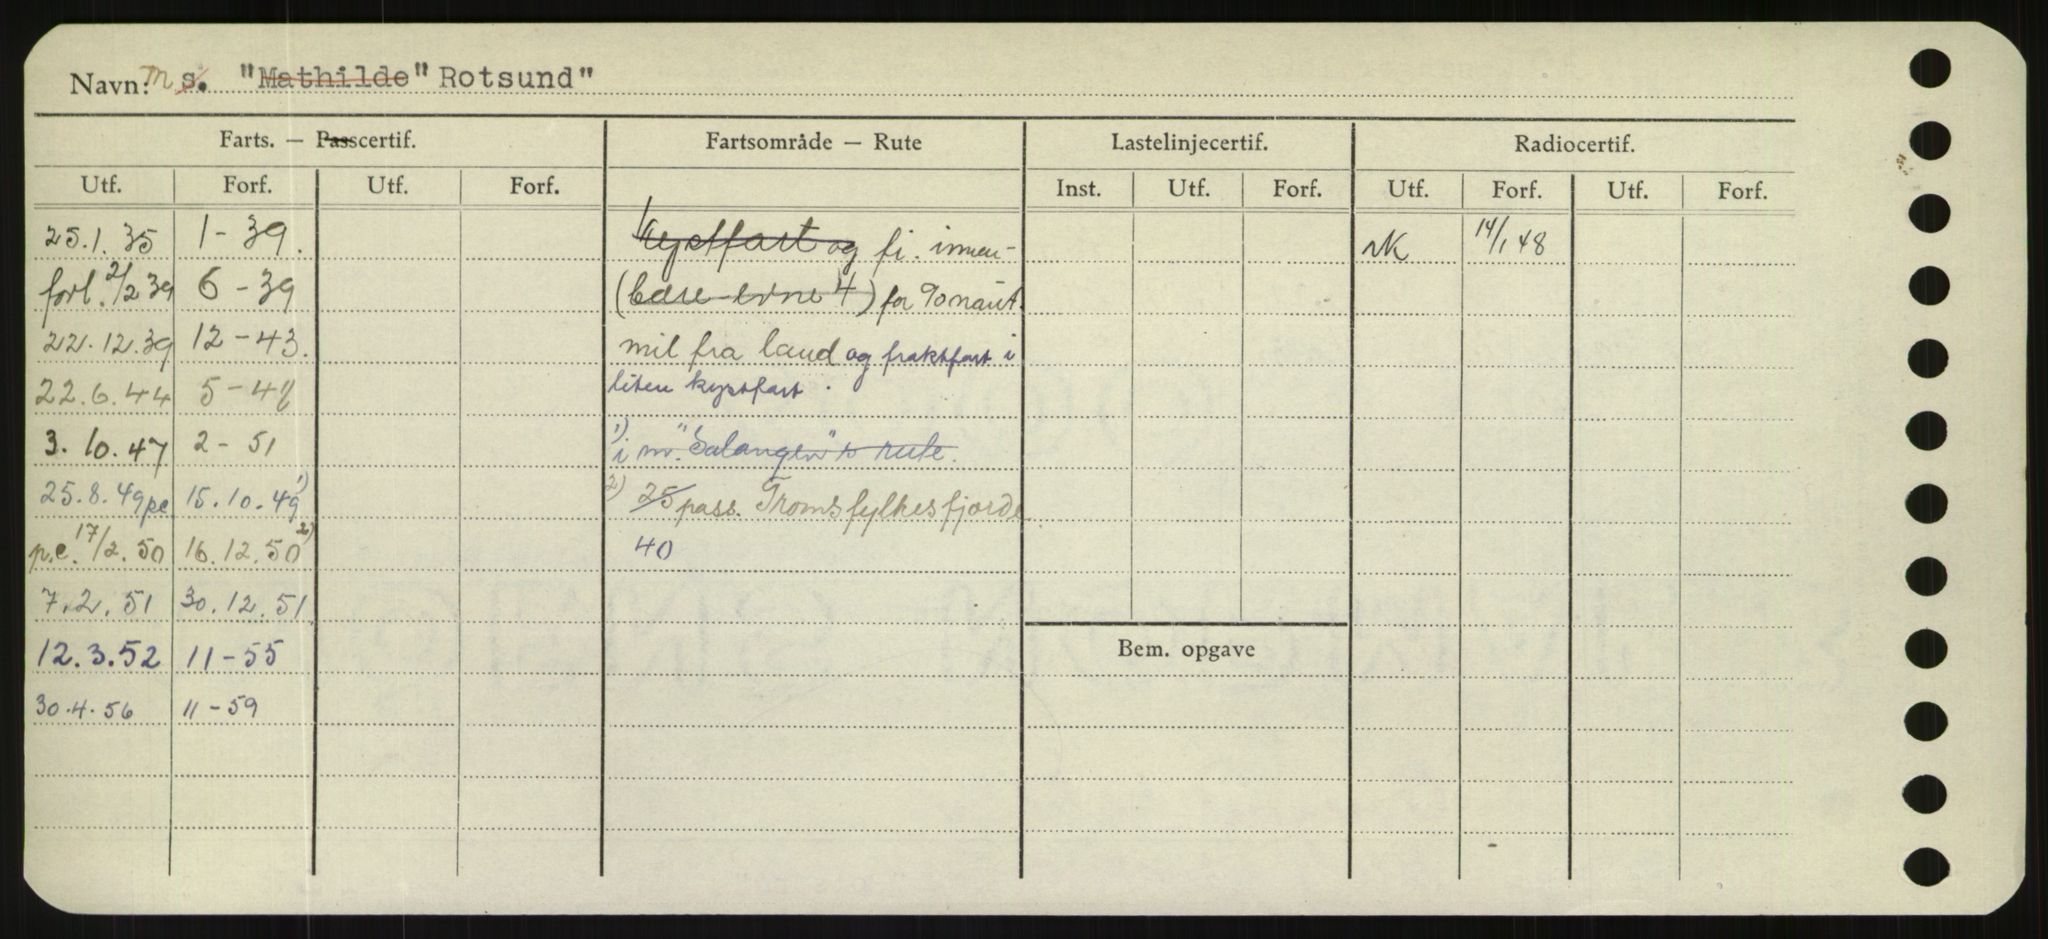 Navn: M s. "Mathilde" Rotsund"
Farts. — Passcertif. Fartsområde — Rute Lastelinjecertif. Radiocertif.
Utf. Forf. Utf. Forf. Inst. Utf. Forf. Utf. Forf. Utf. Forf.
25.1.35 1-39. kystfart og fi. innen- NK 14/1 48
forl. 2/2 39 6-39 (bære-evne 4) for 90 naut.
22.12.39 12-43. mil fra land og fraktfart i
22.6.44 5-47 liten kystfart.
3.10.47 2-51 1) i nv. "Salangen"s rute.
25.8.49 pc 15.10.49 1) 2) 25 pass. Troms fylkes fjorde
p.c. 17/2.50 16.12.50 2) 40
7.2.51 30.12.51
12.3.52 11-55 Bem. opgave
30.4.56 11-59